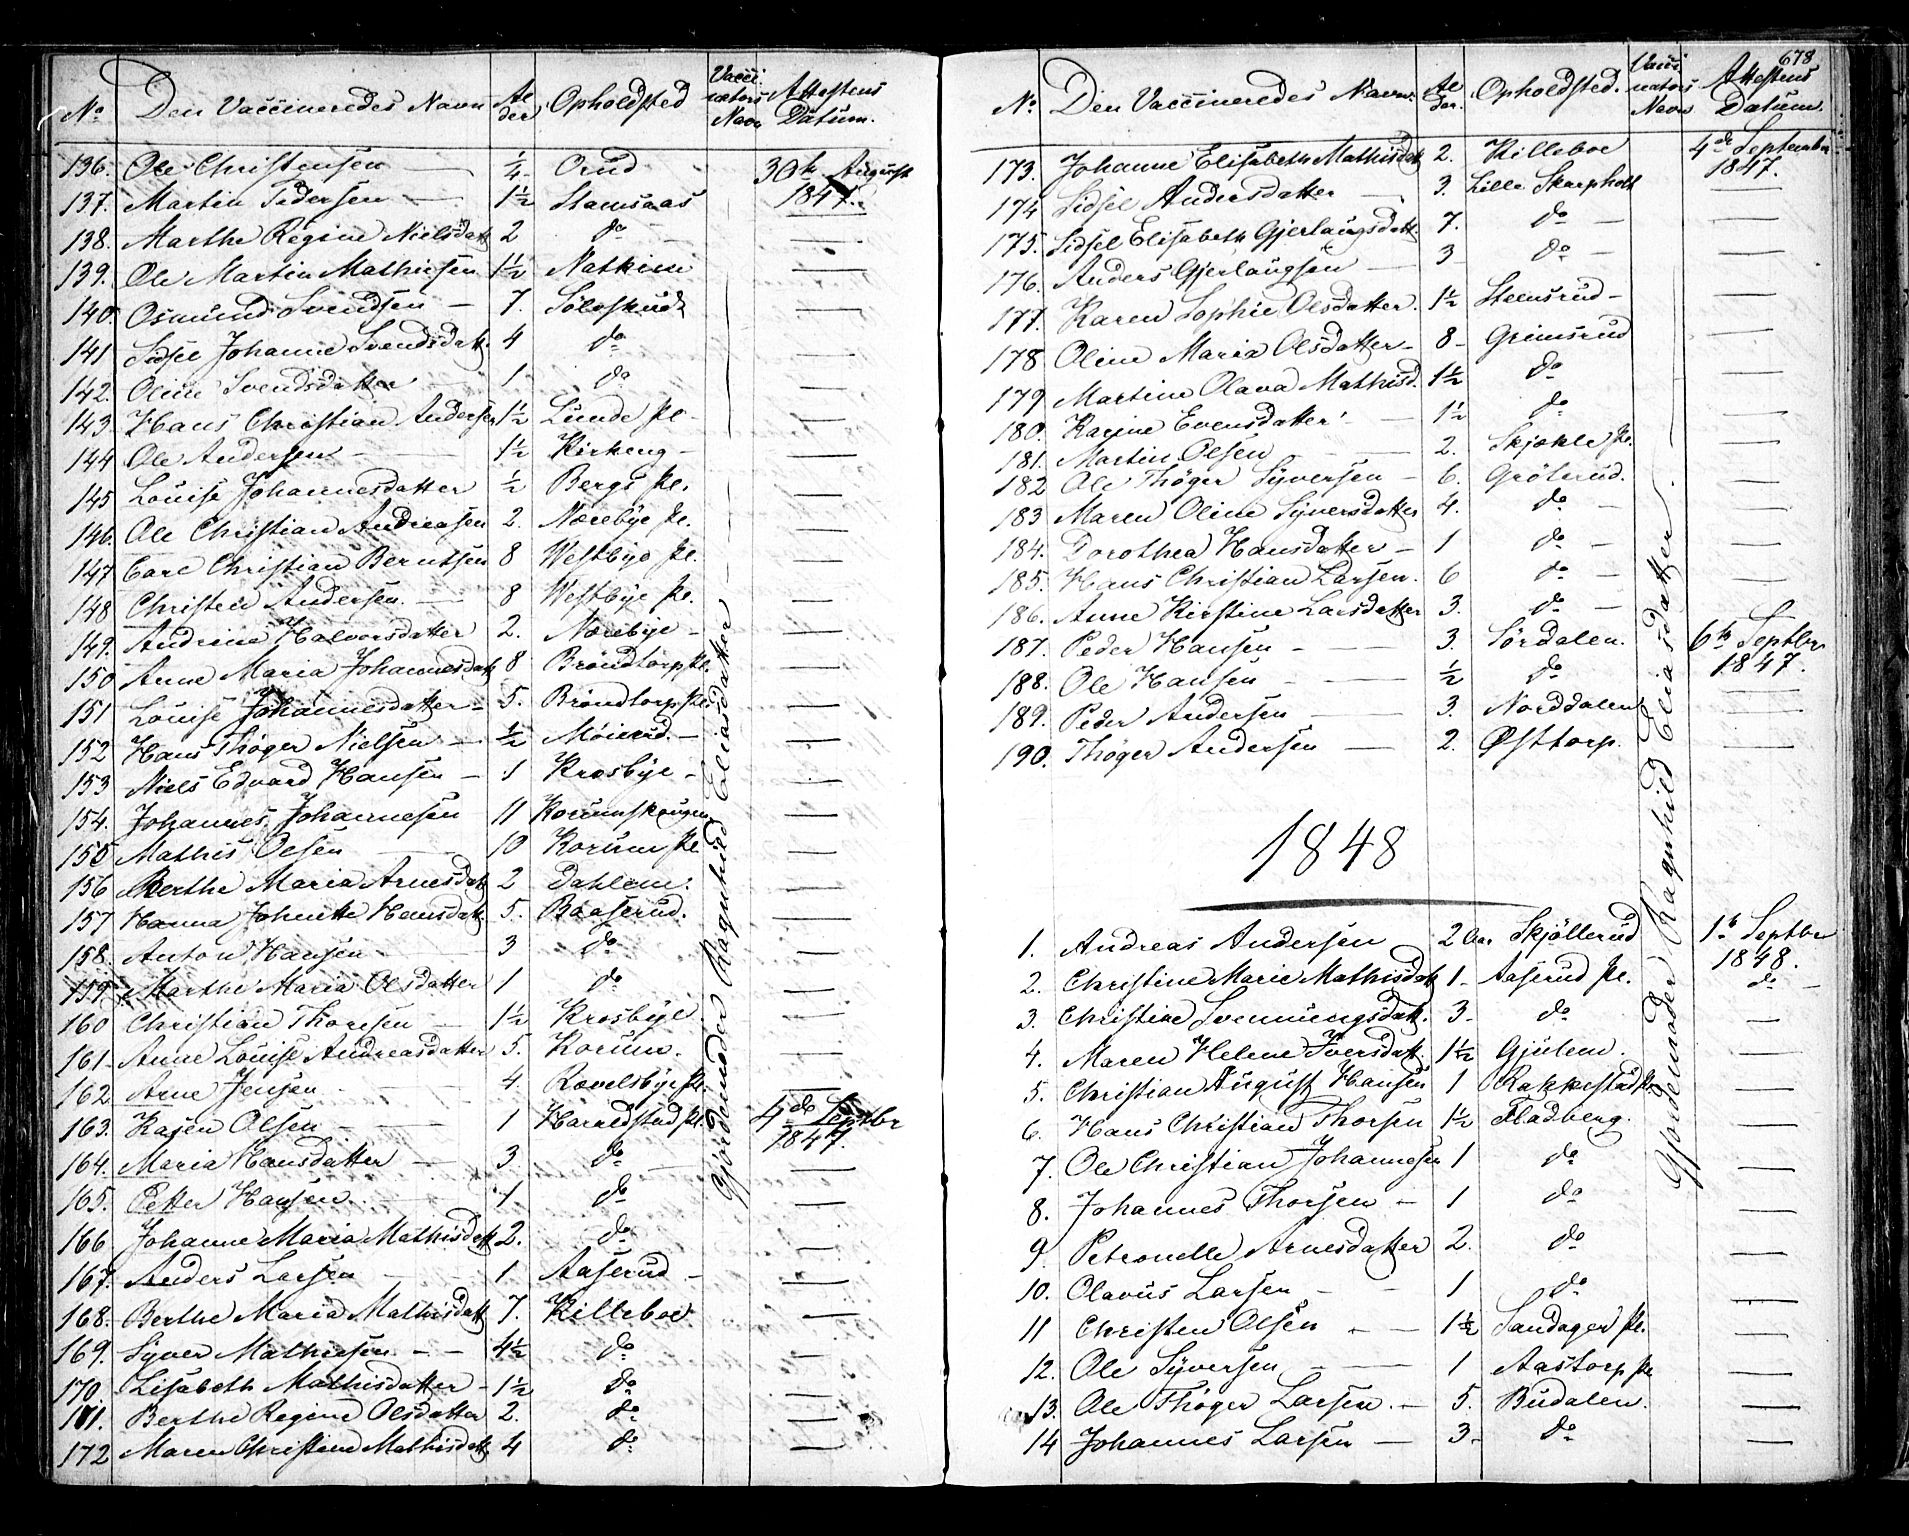 No Den Vaccineredes Navn Al der Opholdsted Vacci nators Navn Attestens Datum.
136. Ole Christensen ½ Orud 30te August
137. Martin Pedersen 1½ Stamsaas 1847.
138. Marthe Regine Nielsdatt 2 do
139. Ole Martin Mathiesen 1½
140. Osmund Svendsen 7.
141 Sidsel Johanne Svendsdatt. 4 do
142. Oline Svendsdatter 1 do
143. Hans Christian Andersen 1½ Lunde Pl.
144 Ole Andersen 1½ Kirkeng
145 Louise Johannesdatter ½ Bergs Pl.
146. Ole Christian Andreasen 2. Nærebye Pl.
147 Carl Christian Berntsen 8 Westbye Pl.
148 Christen Andersen. 8 Westbye Pl.
149. Andrine Halvorsdatter 2. Nærebye
150 Anne Maria Johannesdatt 8 Bröndtorp Pl.
151 Louise Johannesdatter 5. Bröndtorp Pl.
152 Hans Thöger Nielsen ½
153 Niels Edvard Hansen 1 Krosbye
154. Johannes Johannesen 11 Korumskougen
155 Mathis Olsen 10 Korum Pl
156 Berthe Maria Arnesdatt 2 Dahlem.
157 Hanna Johnette Hansdatt. 5. Baaserud.
158. Anton Hansen 3 do
159. Marthe Maria Olsdatter 1 do
160 Christian Thoresen 1½ Krosbye
161. Anne Louise Andreasdatter 5. Korum.
162 Arne Jensen 4. Ravelsbye Pl.
163. Karen Olsen 1 Harreldstad Pl. 4de Septbr
164. Maria Hansdatter 3 do 1847.
165. Petter Hansen 1 do
166 Johanne Maria Mathisdatt 2. do
167. Anders Larsen 1 Aaserud
168. Berthe Maria Mathisdatt 7. Killeboe
169. Syver Mathiesen 4½ do
170. Lisabeth Mathisdatter 1½ do
171. Berthe Regine Olsdatter 2. do
172 Maren Christine Mathisdatt 4 do
Gjordemoder Ragnhild Eliasdatter
678
No. Den Vaccineredes Navn. Al der. Opholdsted. Vacci nators Navn Attestens Datum.
173. Johanne Elisabeth Mathisdatt 2. Killeboe 4de September
174 Sidsel Andersdatter 3. Lille Skarpholt 1847.
175. Sidsel Elisabeth Gjerlaugsdatt. 7. do
176. Anders Gjerlaugsen 3 do
177. Karen Sophie Olsdatter. 1½ Steensrud
178 Oline Maria Olsdatter 8 Grimsrud
179 Martine Olava Mathisd. 1½ do
180. Karine Evensdatter 1½ do
181. Martin Olsen 2. Skjækle Pl.
182 Ole Thöger Syversen 6. Gröterud.
183 Maren Oline Syversdatter 4. do
184. Dorothea Hansdatter 1 do
185. Hans Christian Larsen. 6 do
186. Anne Kirstine Larsdatter 3. do
187. Peder Hansen 3. Sördalen. 6te Septbr
188. Ole Hansen ½ do 1847.
189. Peder Andersen 3. Norddalen
190. Thöger Andersen 2. Østtorp.
1848
1. Andreas Andersen 2 Aar Skjöllerud 1te Septbr
2. Christine Marie Mathisdatt 1 Aaserud Pl. 1848.
3. Christine Svenningsdatt. 3 do do
4. Maren Helene Iversdatt. 1½ Gjölem.
5. Christian August Hansen 1 Rakkestad Pl.
6. Hans Christian Thorsen 1½ Fladberg.
7. Ole Christian Johannesen 1 do
8. Johannes Thorsen 1 do
9. Petronelle Arnesdatter 2. do
10. Olavus Larsen 1 do
11 Christen Olsen 1½ Sandager Pl.
12. Ole Syversen 1 Aastorp Pl
13. Ole Thöger Larsen. 5. Budalen.
14 Johannes Larsen 3 do
Gjordemoder Ragnhild Eliasdatter.